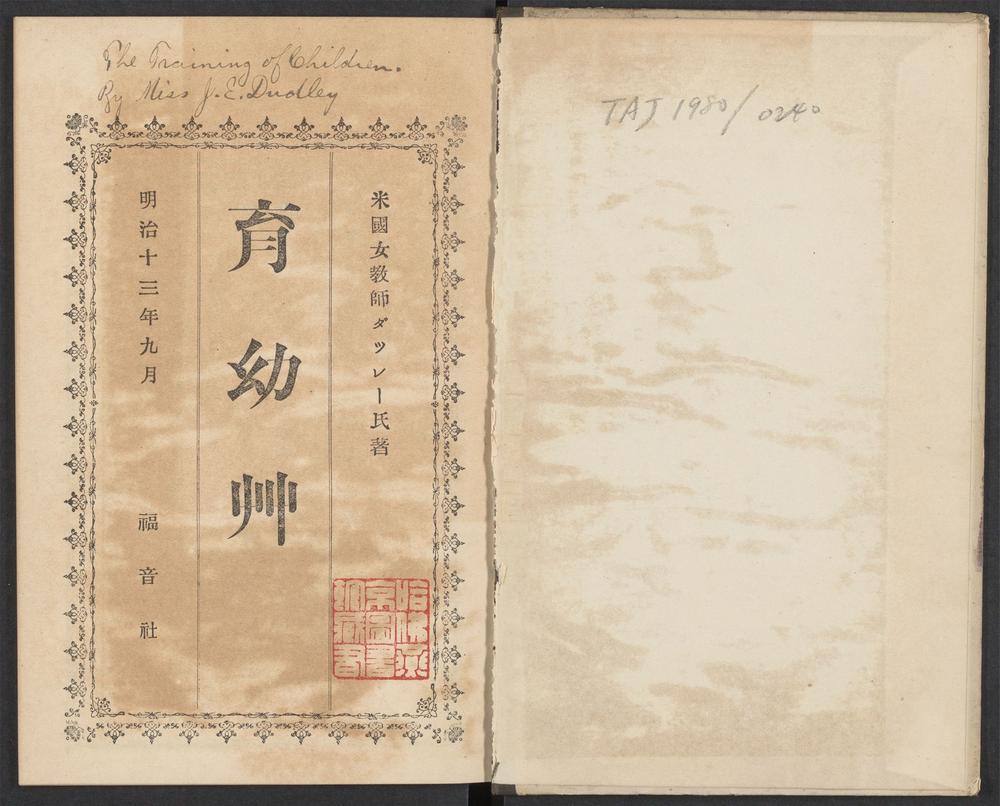 The Training of Children.
By Miss J. E. Dudley
米國女教師ダッレー氏著
育幼艸
明治十三年九月
福音社
哈佛燕京圖書珍藏書
TAJ 1980/0240